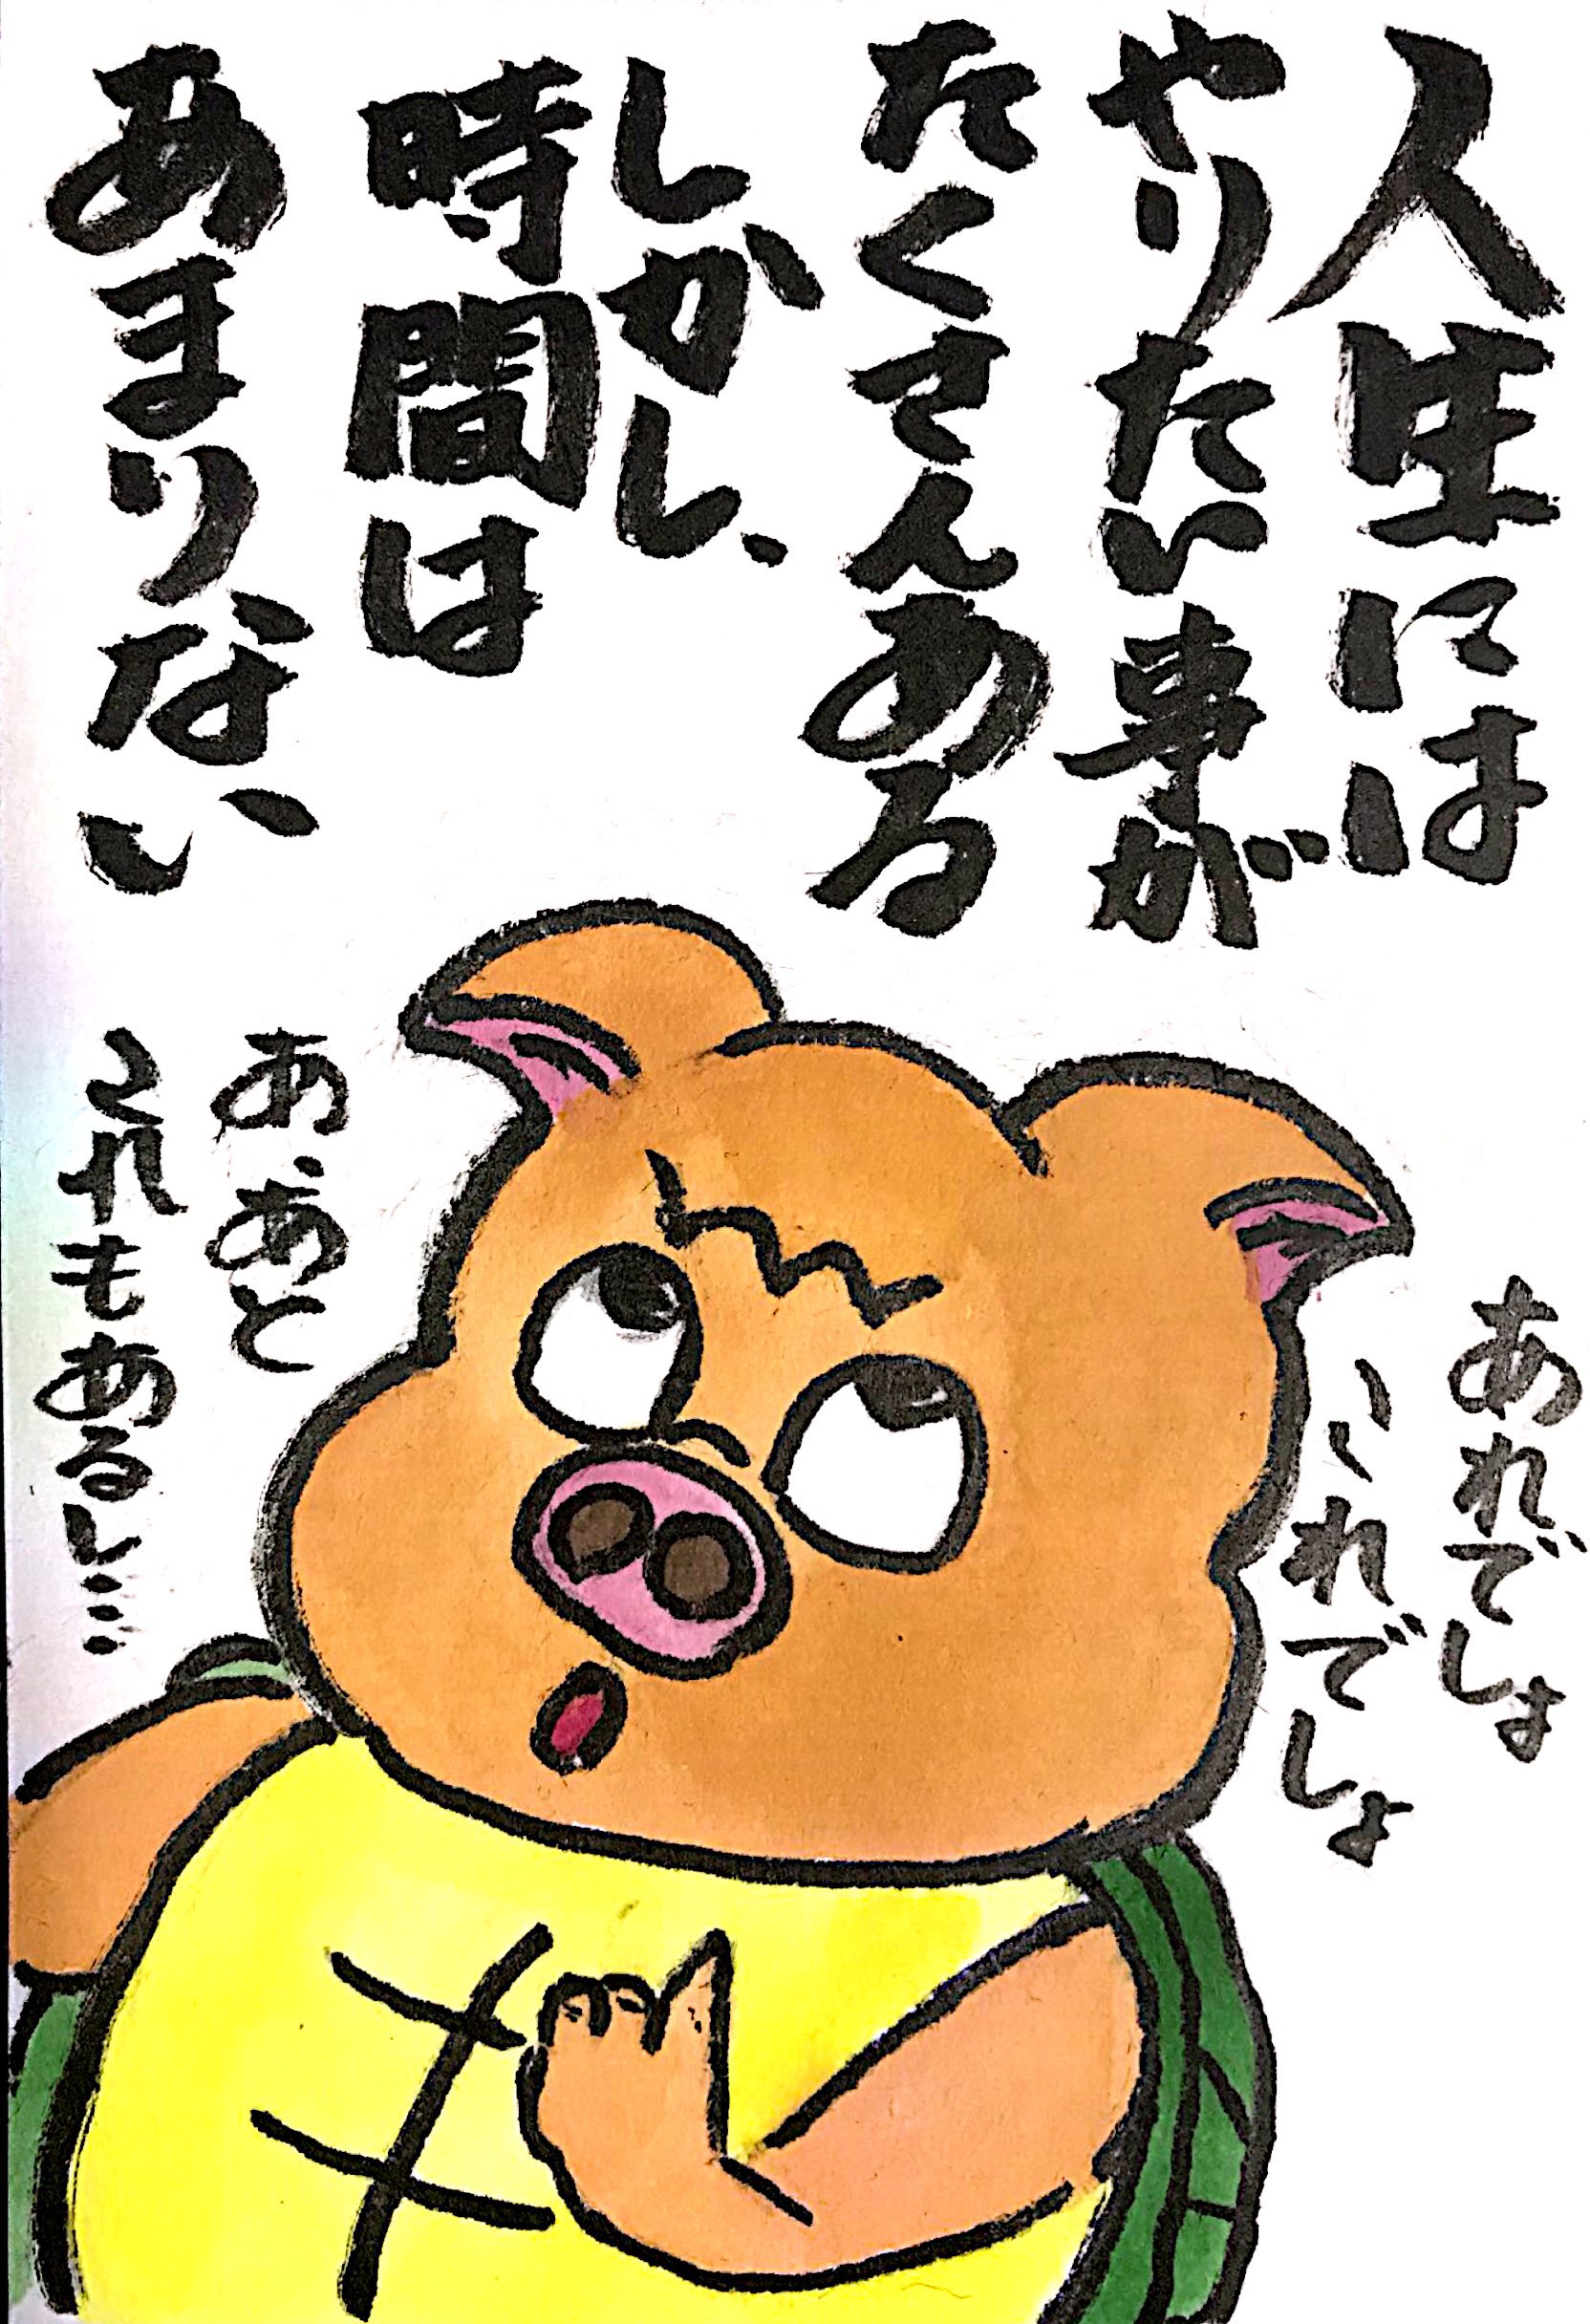 人生には
やりたい事が
たくさんある
しかし、
時間は
あまりない
あれでしょ
これでしょ
あ、あと
これもあるし……